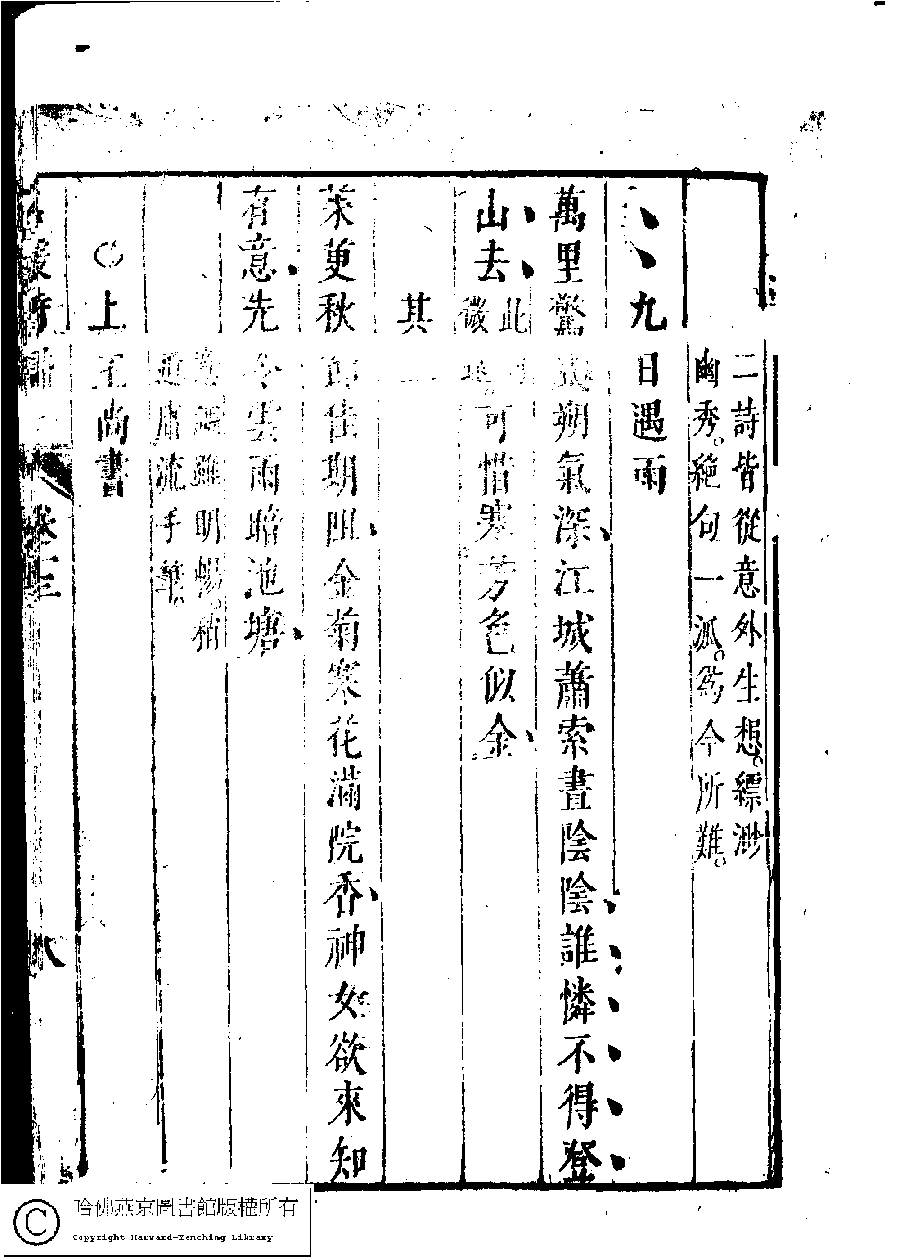 二詩皆從意外生想縹渺
幽秀絕句一派為今所難
九日遇雨
萬里驚飇朔氣深江城蕭索晝陰陰誰憐不得登
山去可惜寒芳色似金
此
微
其二
茱萸秋節佳期阻金菊寒花滿院香神女欲來知
有意先令雲雨暗池塘
意調雖明暢稍
近庸流手筆
上王尚書
名媛詩歸
卷十三
八
哈佛燕京圖書館版權所有
Copyright Harvard-Yenching Library